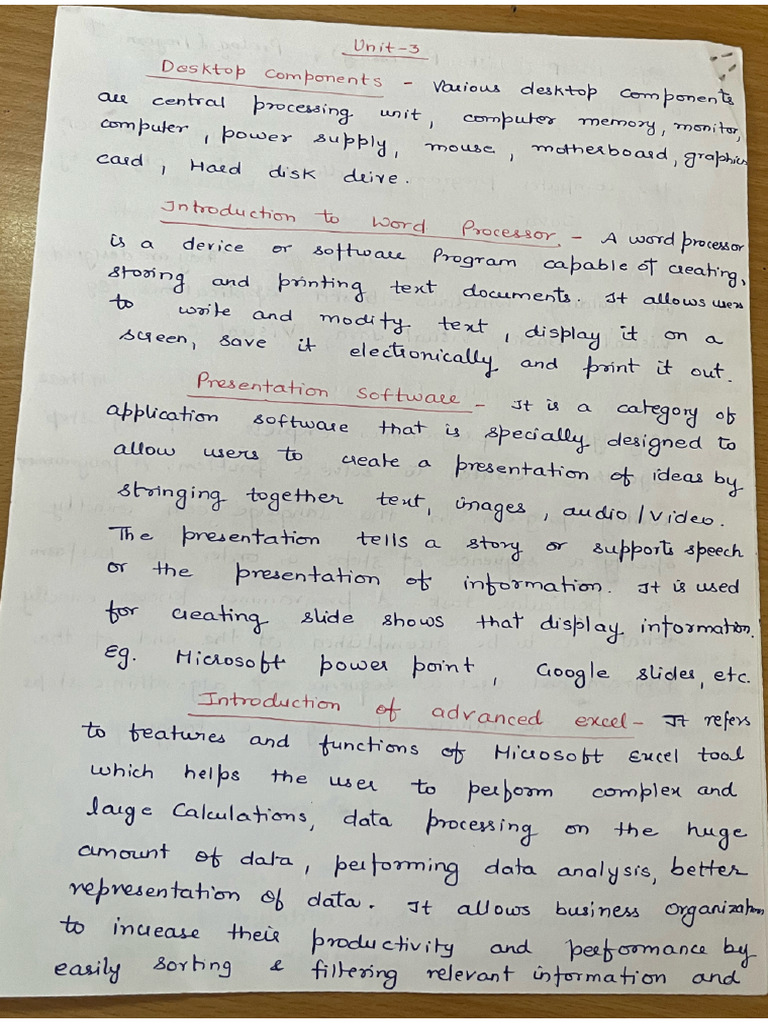 Unit-3
Desktop Components - Various desktop components
are central processing unit, computer memory, monitor,
computer, power supply, mouse, motherboard, graphics
card, Hard disk drive.
Introduction to Word Processor. - A word processor
is a device or software Program capable of creating,
storing and printing text documents. It allows users
to write and modify text, display it on a
screen, save it electronically and print it out.
Presentation Software - It is a category of
application software that is specially designed to
allow users to create a presentation of ideas by
stringing together text, images, audio/video.
The presentation tells a story or supports speech
or the presentation of information. It is used
for creating slide shows that display information.
Eg. Microsoft power point, Google slides, etc.
Introduction of advanced excel - It refers
to features and functions of Microsoft Excel tool
which helps the user to perform complex and
large Calculations, data processing on the huge
amount of data, performing data analysis, better
representation of data. It allows business organization
to increase their productivity and performance by
easily sorting & filtering relevant information and